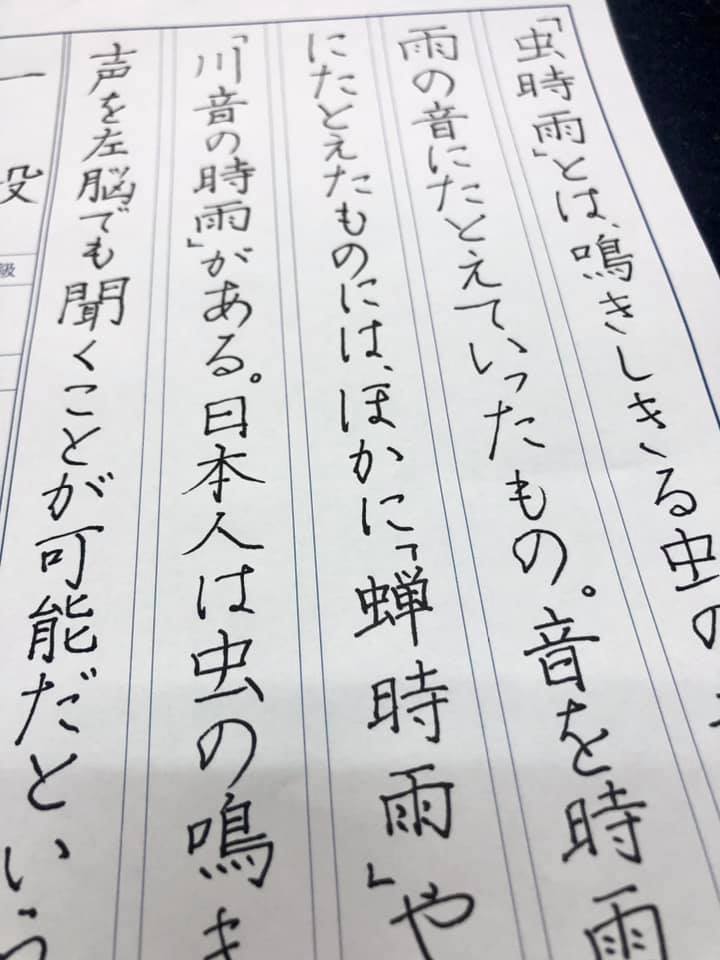 「虫時雨」とは、鳴きしきる虫の
雨の音にたとえていったもの。音を時雨
にたとえたものには、ほかに「蝉時雨」や
「川音の時雨」がある。日本人は虫の鳴き
声を左脳でも聞くことが可能だという
一
級